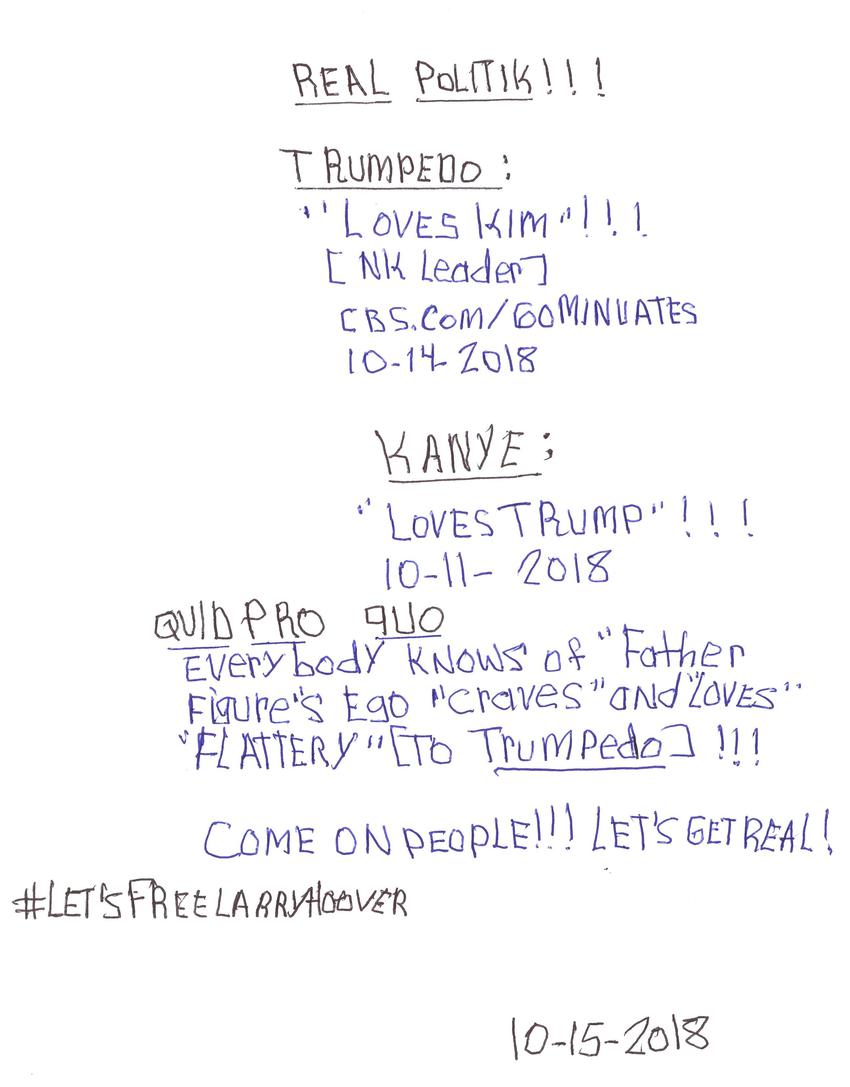 REAL POLITIK!!!
TRUMPEDO:
"LOVES KIM"!!!
[NK Leader]
CBS.COM/60MINUATES
10-14-2018
KANYE:
"LOVES TRUMP"!!!
10-11-2018
QUID PRO QUO
EVERYbODY KNOWS of "Father
FIGURE'S EgO "craves" aNd "LOVES"
"FLATTERY" [TO TrUMPedo] !!!
COME ON PEOPLE!!! LET'S GET REAL!
#LET'SFREELARRYHOOVER
10-15-2018